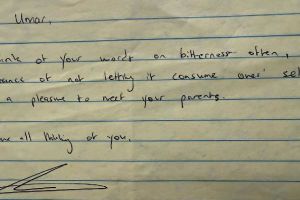 Umar,
ink of your words on bitterness often,
ance of not letting it consume ones' sel
a pleasure to meet your parents.
all thinking of you.